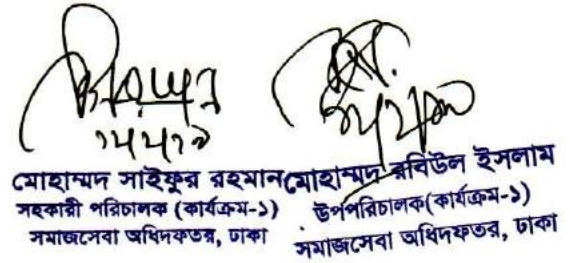 মোহাম্মদ সাইফুর রহমান
সহকারী পরিচালক (কার্যক্রম-১)
সমাজসেবা অধিদফতর, ঢাকা
মোহাম্মদ রবিউল ইসলাম
উপপরিচালক(কার্যক্রম-১)
সমাজসেবা অধিদফতর, ঢাকা